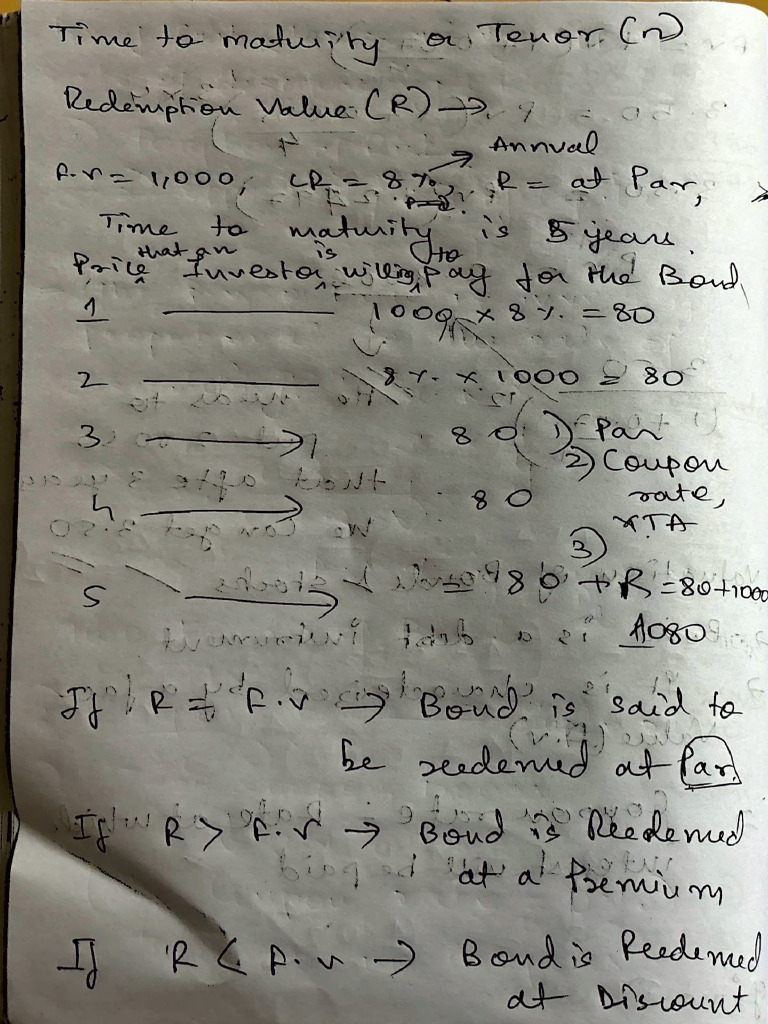 Time to maturity or Tenor (n)
Redemption Value (R) →
Annual
F.V = 1,000, CR = 8%, R = at Par,
Time to maturity is 5 years.
that an is to
Price Investor willing pay for the Bond
1 1000 x 8 %. = 80
2 8 %. x 1000 = 80
3 → 80 1) Par
2) Coupon
4 → 80 rate,
3)
5 → = 80 + R = 80+1000
1080
If R = F.V → Bond is said to
be reedemed at Par
If R > F.V → Bond is Reedemed
at a Premium
If R < F.V → Bond is Reedemed
at Discount